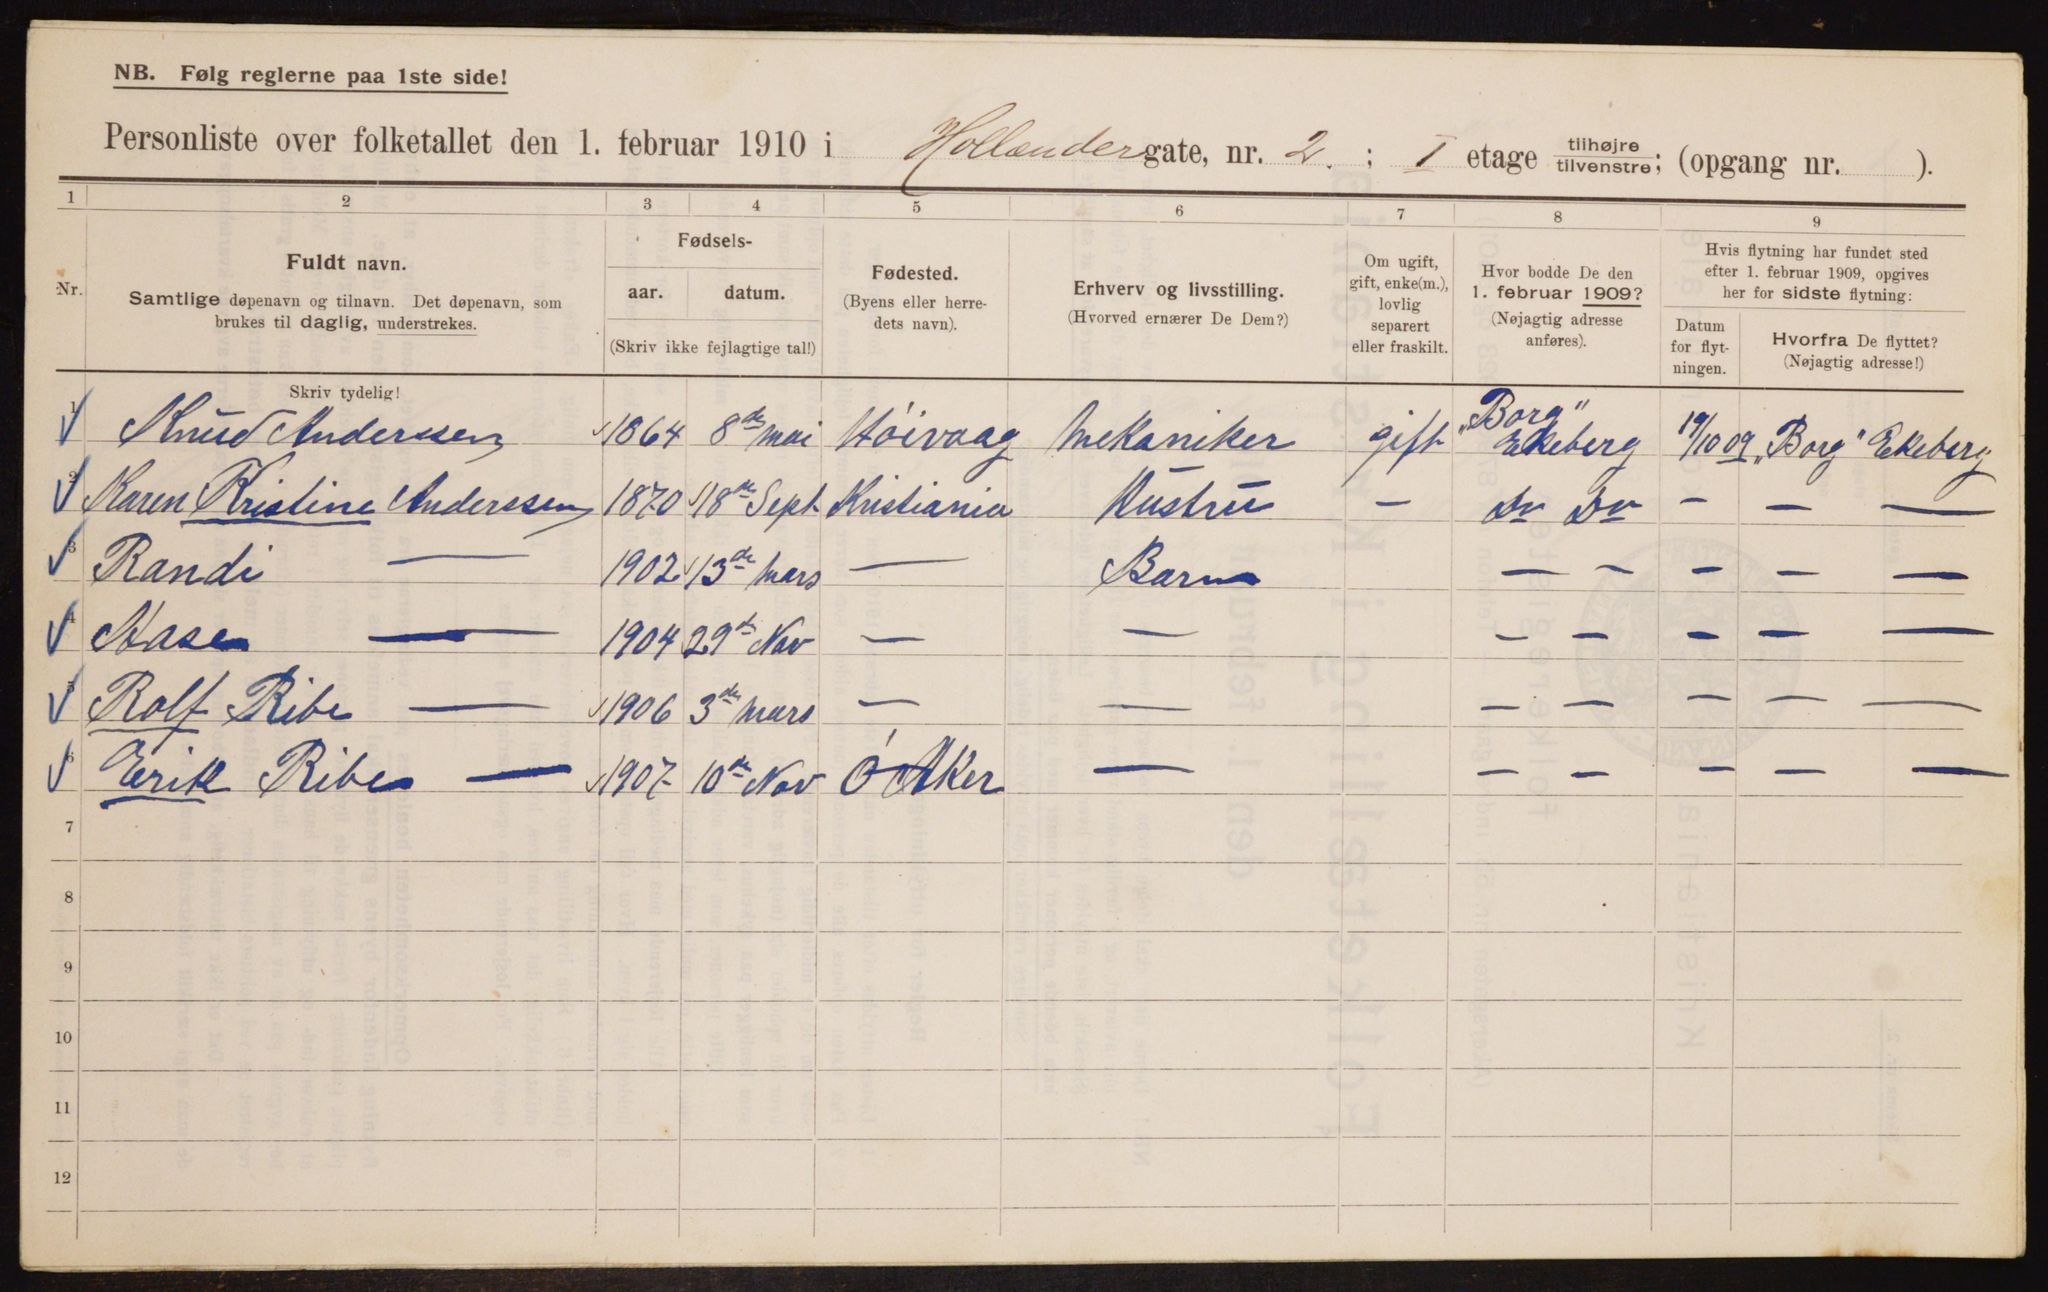 NB. Følg reglerne paa 1ste side!
Personliste over folketallet den 1. februar 1910 i Hollendergate, nr. 2. ; I etage tilhøjre tilvenstre; (opgang nr. ).
1 2 3 4 5 6 7 8 9
Nr.
Fuldt navn.
Samtlige døpenavn og tilnavn. Det døpenavn, som
brukes til daglig, understrekes.
Skriv tydelig!
Fødsels-
aar. datum.
(Skriv ikke fejlagtige tal!)
Fødested.
(Byens eller herre-
dets navn).
Erhverv og livsstilling.
(Hvorved ernærer De Dem?)
Om ugift,
gift, enke(m.),
lovlig
separert
eller fraskilt.
Hvor bodde De den
1. februar 1909?
(Nøjagtig adresse
anføres).
Hvis flytning har fundet sted
efter 1. februar 1909, opgives
her for sidste flytning:
Datum
for flyt-
ningen.
Hvorfra De flyttet?
(Nøjagtig adresse!)
1 Knud Anderssen 1864 8de mai Høivaag Mekaniker gift „Borg" Ekeberg 19/10 09 „Borg" Ekeberg
2 Karen Kristine Anderssen 1870 18de Sept. Kristiania Hustru — Do Do — — —
3 Randi — 1902 13de Mars — Barn — — — — —
4 Aase — 1904 29de Nov — — — — — — —
5 Rolf Ribe — 1906 3de Mars — — — — — — —
6 Erik Ribe — 1907 10de Nov Ø Aker — — — — — —
7
8
9
10
11
12